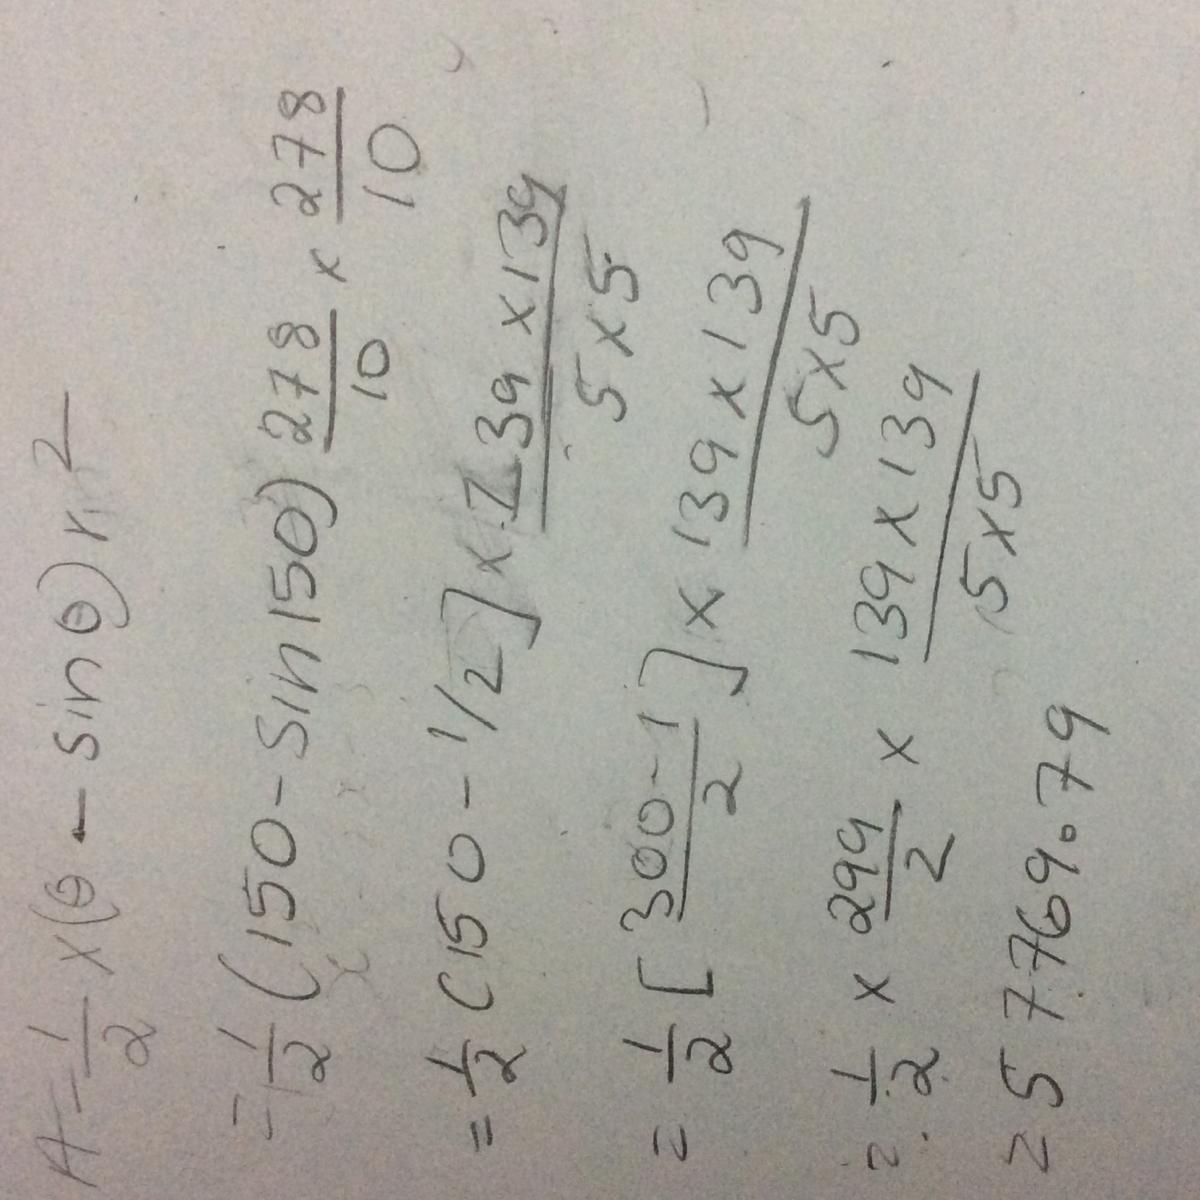 A = 1/2 x (θ - sin θ) r²
= 1/2 (150 - Sin 150) 278/10 x 278/10
= 1/2 (150 - 1/2] x 139 x 139 / 5 x 5
= 1/2 [300 - 1 / 2] x 139 x 139 / 5 x 5
= 1/2 x 299/2 x 139 x 139 / 5 x 5
= 57769.79